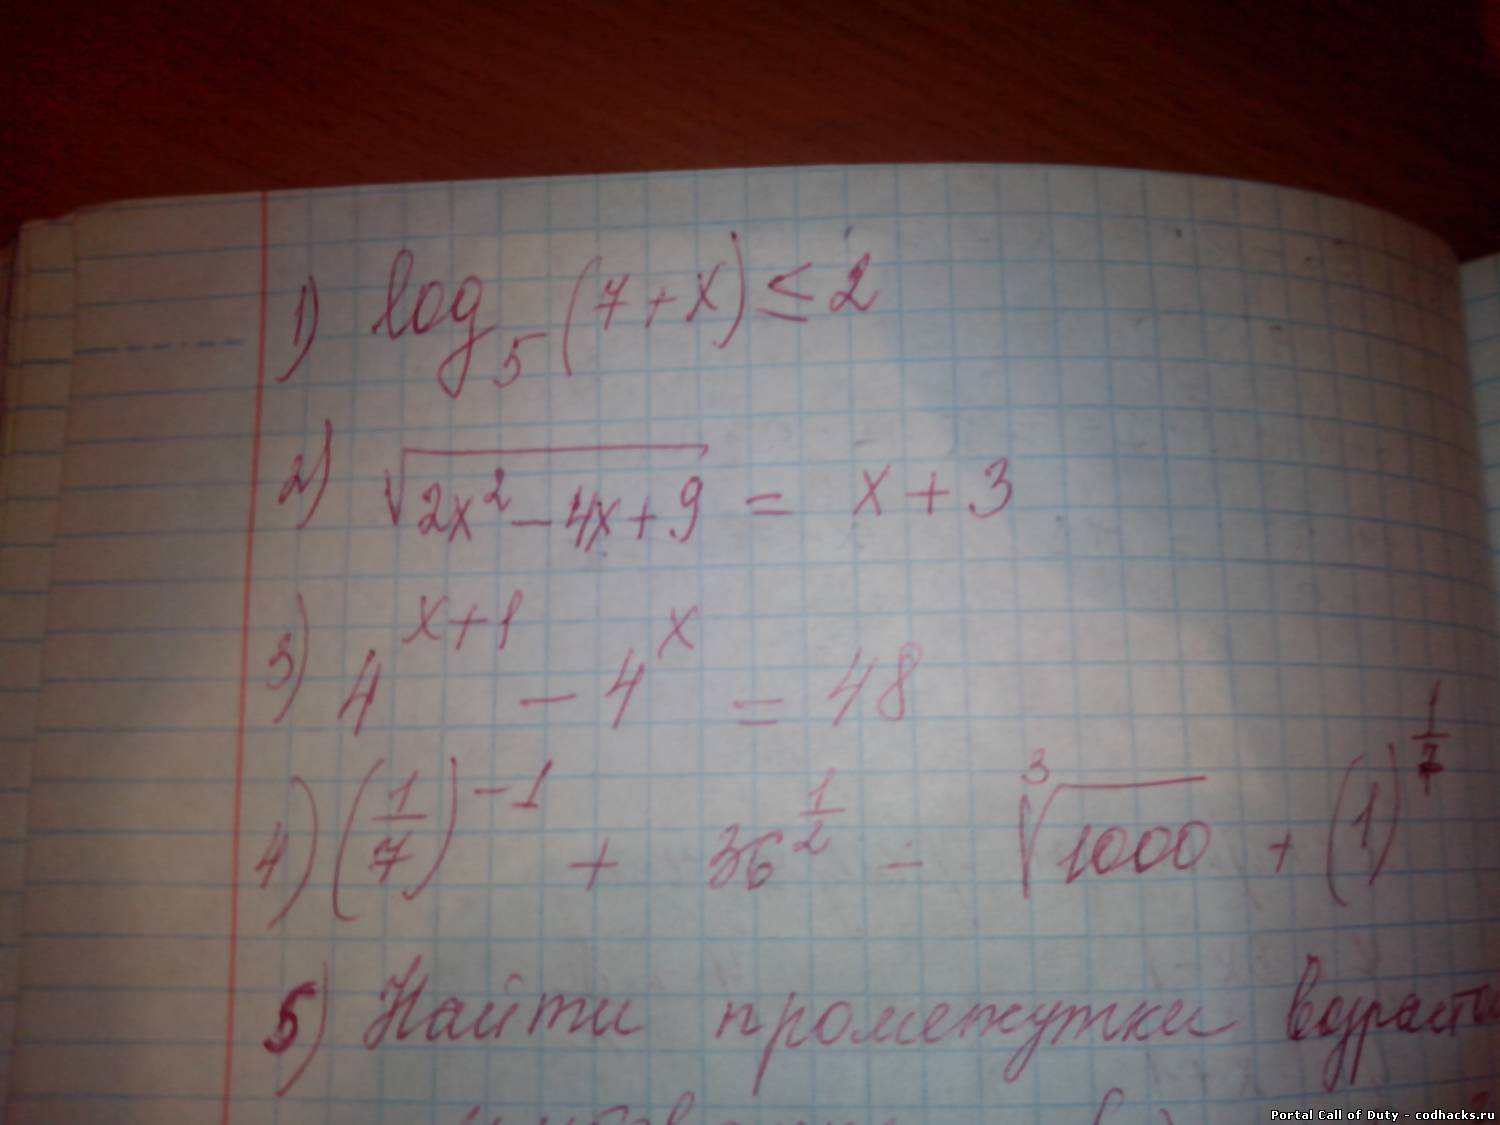 1) log₅(7+x) ≤ 2
2) √(2x² - 4x + 9) = x + 3
3) 4^(x+1) - 4^x = 48
4) (1/7)^(-1) + 36^(1/2) - ∛1000 + (1)^(1/7)
5) Найти промежутки
Portal Call of Duty - codhacks.ru